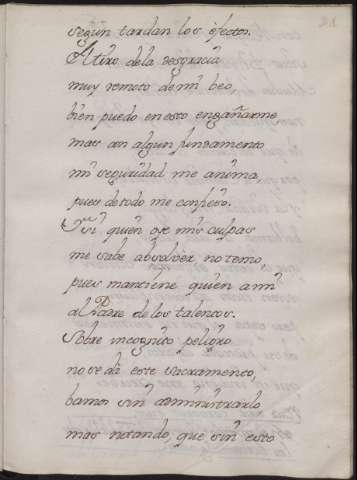 segun tardan los efectos.
A tiro de la desgracia
muy remoto de mi beo,
bien puedo en esto engañarme
mas con algun fundamento
mi seguridad me anima,
pues de todo me confieso.
Y si quien oye mis culpas
me sabe absolver, no temo,
pues mantiene quien a mi
al Padre de los talentos.
Sobre incognito peligro
no se dà este sacramento,
bamos sin administrarlo
mas notando, que sin esto